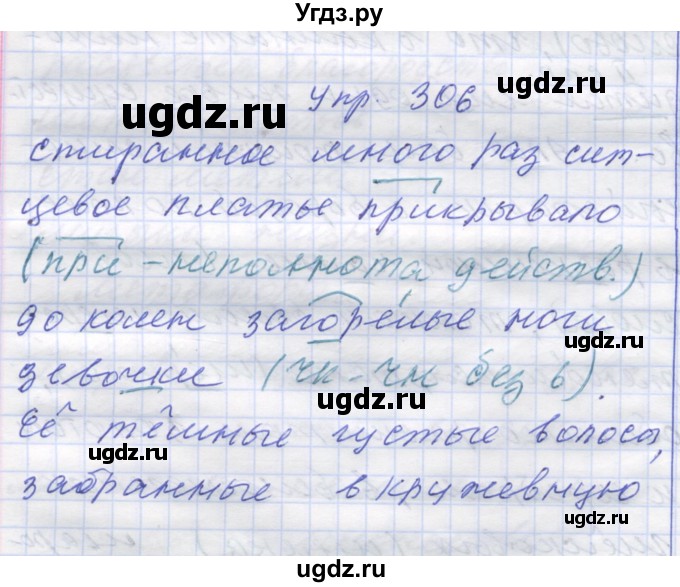 Угдз.ру
ugdz.ru ugdz.ru
Упр. 306
стиранное много раз сит-
ugdz.ru
цевое платье прикрывало
(при - неполнота действ.)
ugdz.ru
до колен загорелые ноги
девочки (чк - чн без ь).
ugdz.ru
Её тёмные густые волосы,
ugdz.ru
забранные в кружевную
ugdz.ru
ugdz.ru